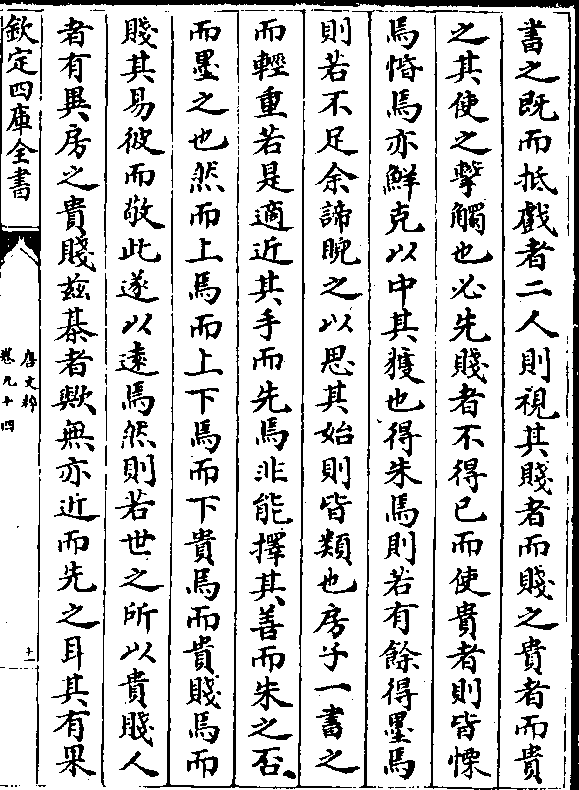 書之既而抵戲者二人則視其賤者而賤之貴者而貴
之其使之擊觸也必先賤者不得已而使貴者則皆慄
焉惛焉亦鮮克以中其獲也得朱焉則若有餘得墨焉
則若不足余諦睨之以思其始則皆類也房子一書之
而輕重若是適近其手而先焉非能擇其善而朱之否
而墨之也然而上焉而上下焉而下貴焉而貴賤焉而
賤其易彼而敬此遂以遠焉然則若世之所以貴賤人
者有異房之貴賤茲棊者歟無亦近而先之耳其有果
欽定四庫全書
唐文粹
卷九十四
十一